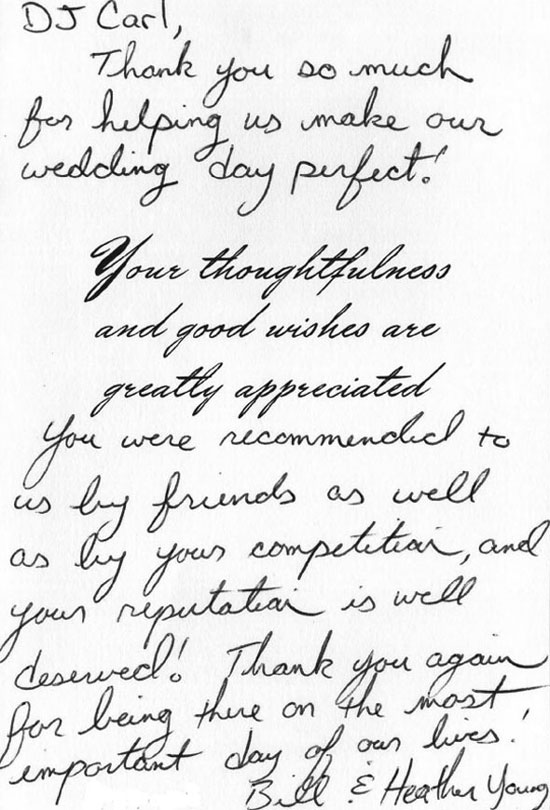 DJ Carl,
Thank you so much
for helping us make our
wedding day perfect!
Your thoughtfulness
and good wishes are
greatly appreciated
You were recommended to
us by friends as well
as by your competition, and
your reputation is well
deserved! Thank you again
for being there on the most
important day of our lives!
Bill & Heather Young